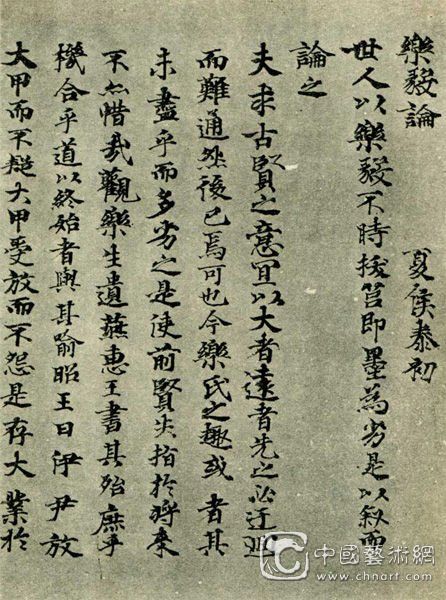 樂毅論 夏侯泰初
世人以樂毅不時拔莒即墨為劣是以叙而
論之
夫求古賢之意宜以大者遠者先之必迂迴
而難通然後已焉可也今樂氏之趣或者其
未盡乎而多劣之是使前賢失指於將來
不亦惜哉觀樂生遺燕惠王書其殆庶乎
機合乎道以終始者與其喻昭王曰伊尹放
大甲而不疑大甲受放而不怨是存大業於
中國藝術網
www.chnart.com